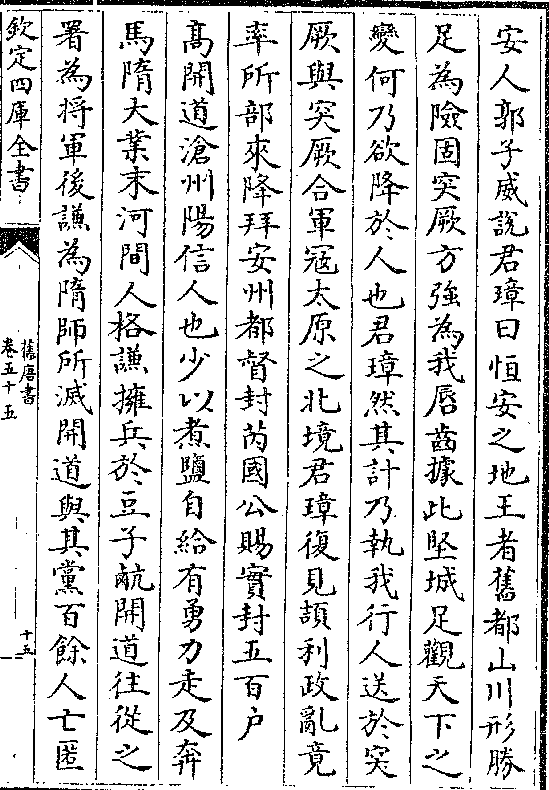 安人郭子威說君璋曰恒安之地王者舊都山川形勝
足為險固突厥方強為我唇齒據此堅城足觀天下之
變何乃欲降於人也君璋然其計乃執我行人送於突
厥與突厥合軍冦太原之北境君璋復見頡利政亂竟
率所部來降拜安州都督封芮國公賜實封五百户
髙開道滄州陽信人也少以煮鹽自給有勇力走及奔
馬隋大業末河間人格謙擁兵於豆子䴚開道往從之
署為將軍後謙為隋師所滅開道與其黨百餘人亡匿
欽定四庫全書
舊唐書
卷五十五
十五